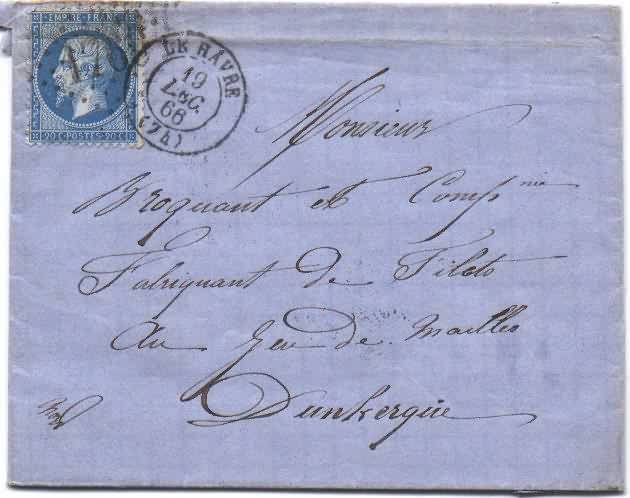 EMPIRE FRANC
20 C POSTES 20 C
LE HAVRE
19
DEC.
66
(74)
Monsieur
Broquant et Comp nie
Fabriquant de Filets
Au Jeu de Mailles
Dunkerque